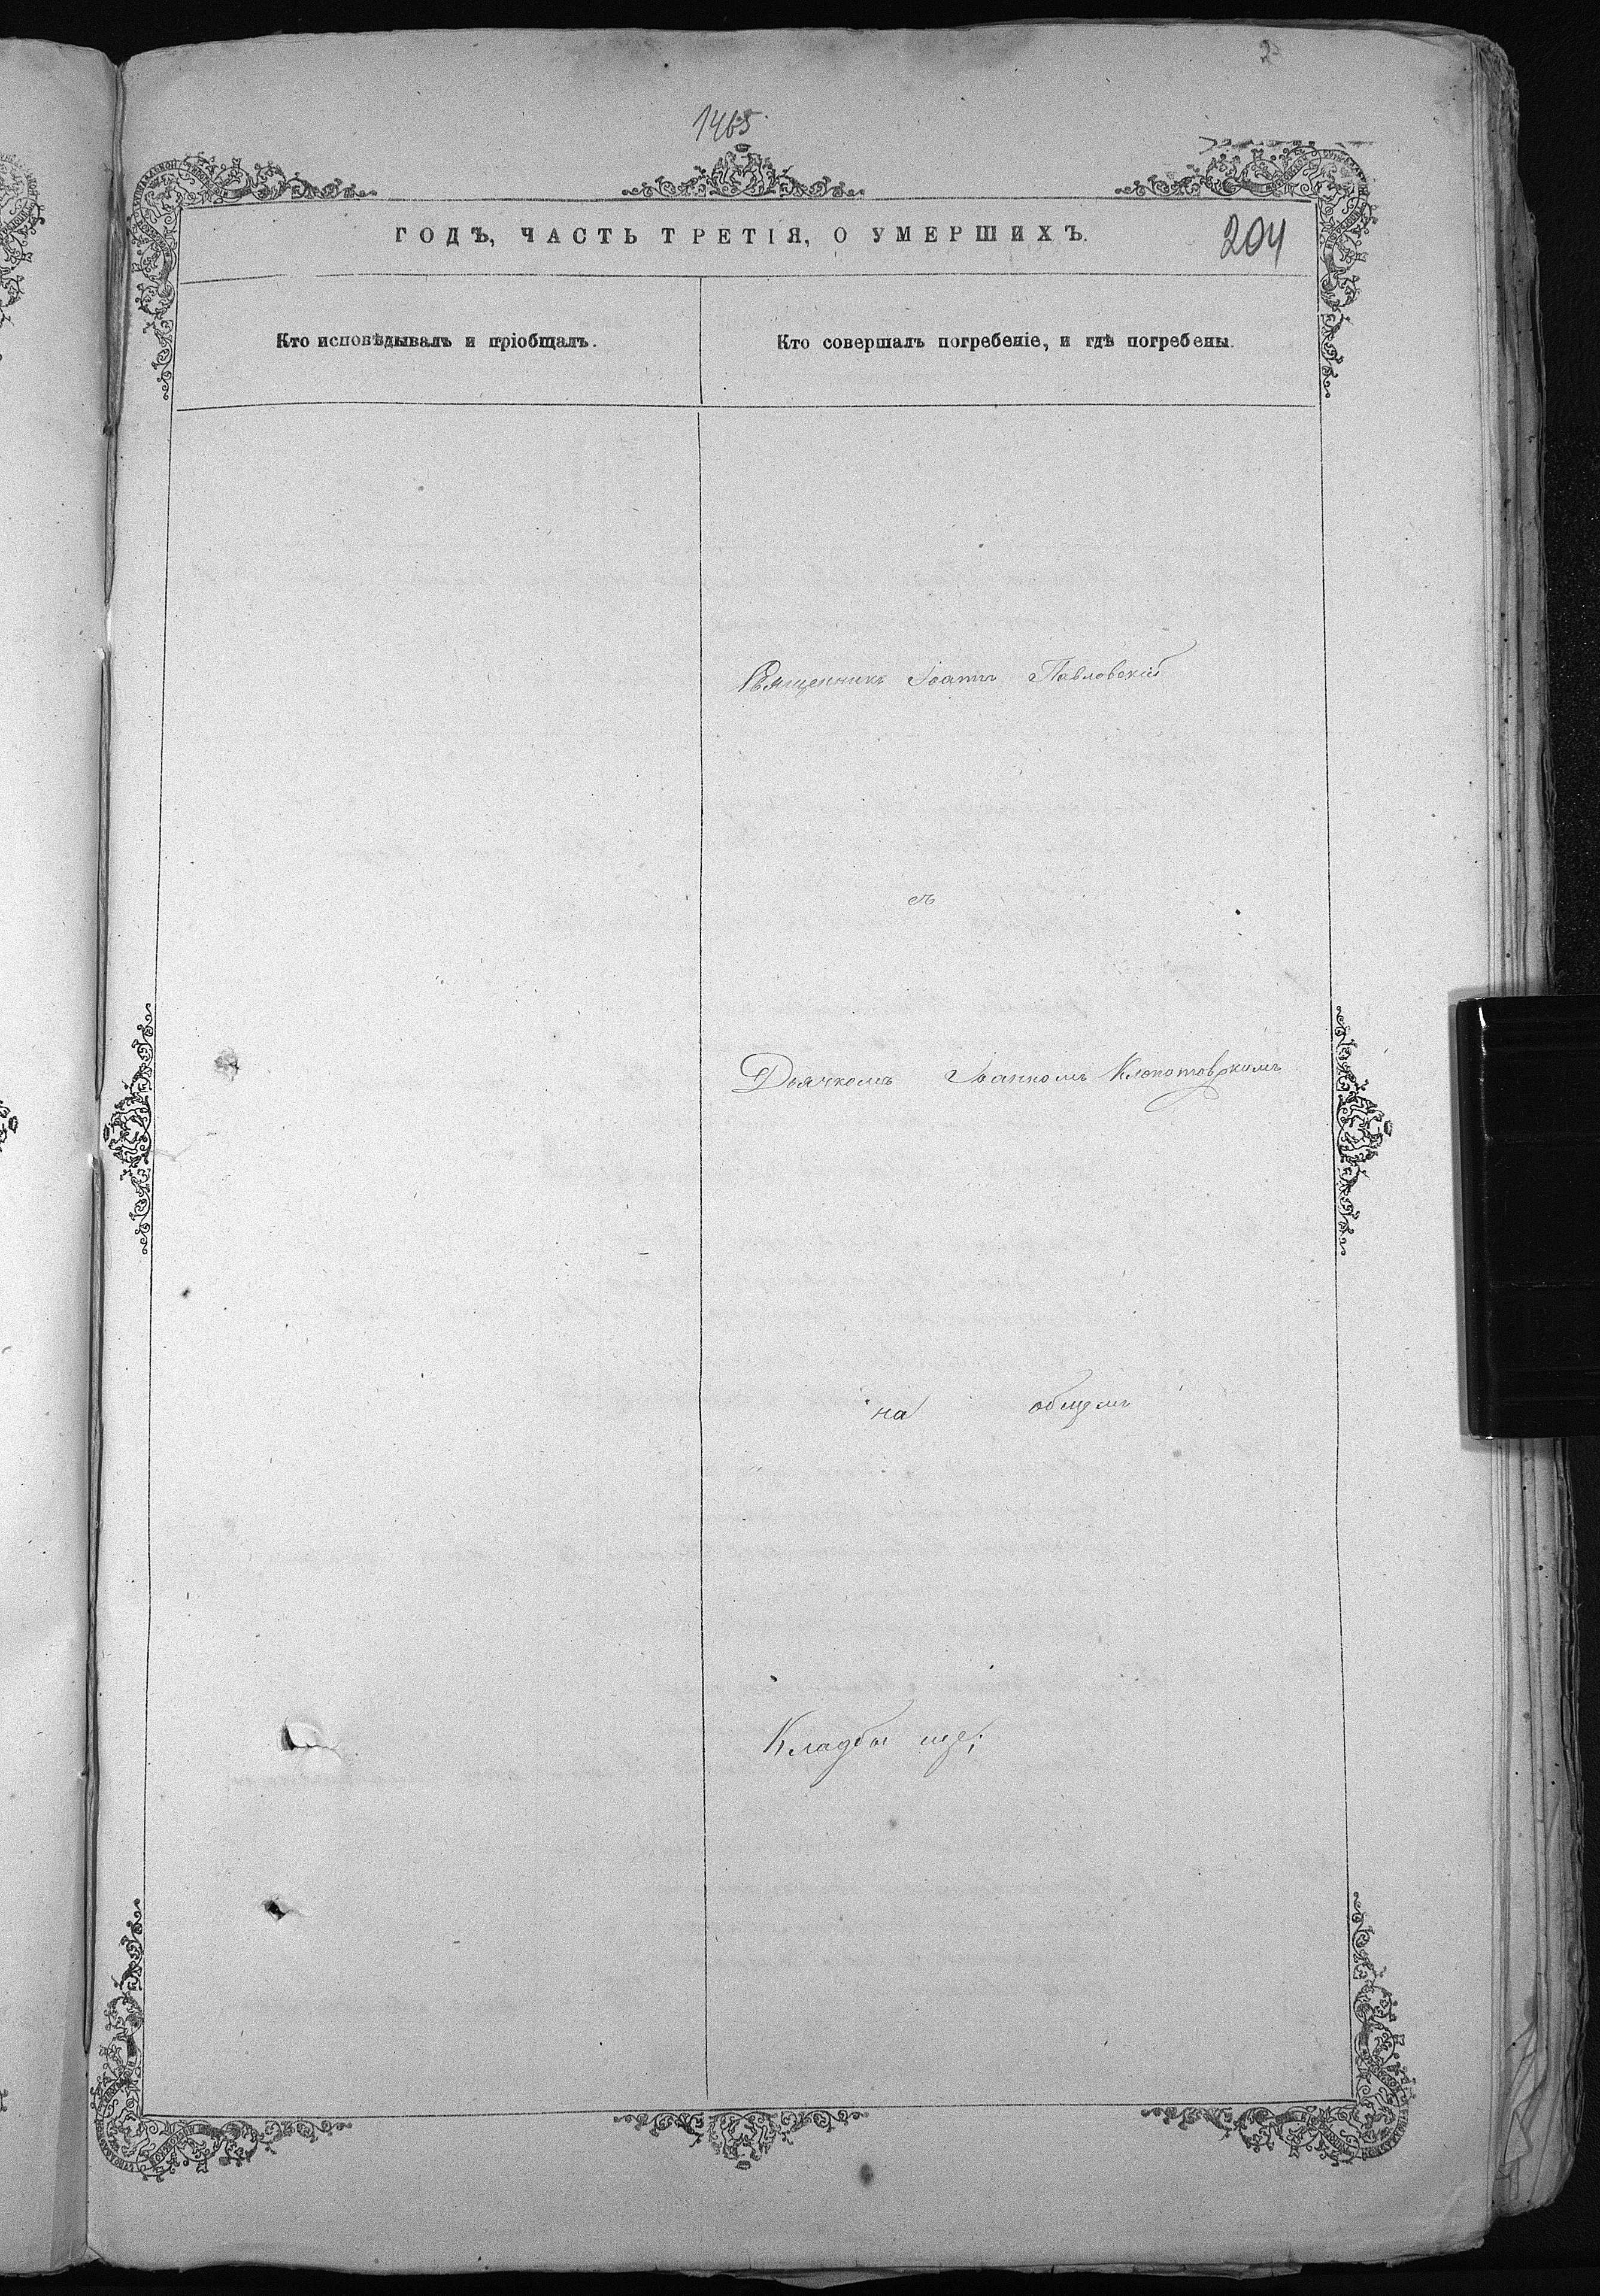 2
1465
ГОДЪ, ЧАСТЬ ТРЕТІЯ, О УМЕРШИХЪ.
204
Кто исповѣдывалъ и пріобщалъ.
Кто совершалъ погребеніе, и гдѣ погребены.
Священникъ Іоаннъ Павловскій
съ
Дьячкомъ Іоанномъ Клопотовскимъ
на общемъ
Кладбищѣ;